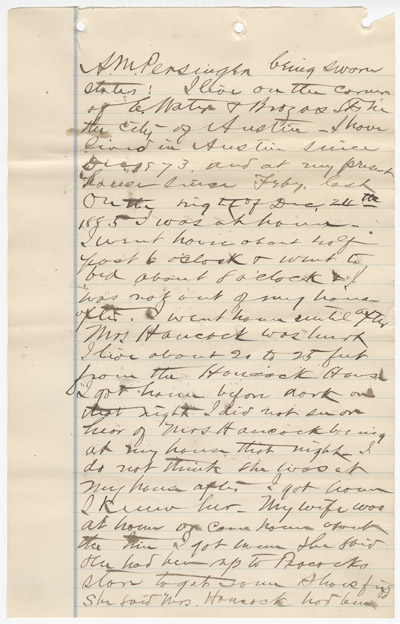 A. M. Persinger being sworn
states: I live on the corner
of E. Water & Brazos Sts in
the city of Austin - I have
lived in Austin since
Dec 1873. and at my present
house since Feby. last
On the night of Dec, 24th
1885 I was at home -
I went home about half
past 6 oclock & went to
bed about 8 oclock & I
was not out of my house
after I went home until after
Mrs Hancock was hurt
I live about 20 to 25 feet
from the Hancock House
I got home before dark on
that night I did not see or
hear of Mrs Hancock being
at my house that night. I
do not think she was at
my house after I got home
I know her - My wife was
at home or came home about
the time I got home she said
she had been up to Peacocks
store to get some shoes fixed
she said Mrs. Hancock had been